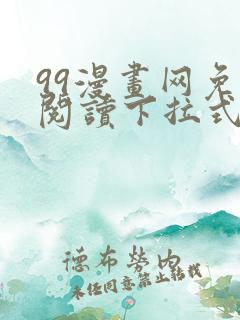 99漫畫网免
閱讀下拉式
德布勞内
未经同意禁止转载